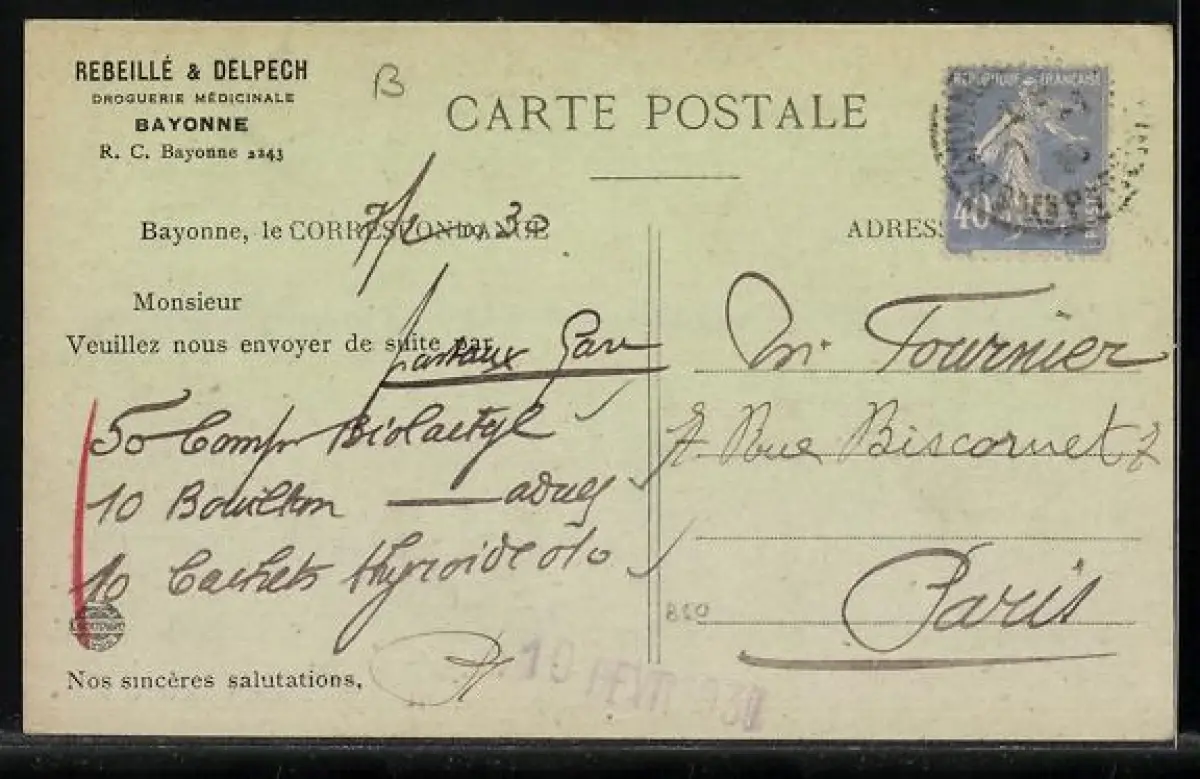 REBEILLÉ & DELPECH
DROGUERIE MÉDICINALE
BAYONNE
R. C. Bayonne 2243
B
CARTE POSTALE
REPUBLIQUE FRANÇAISE
40
POSTES
Bayonne, le 7/2 30
CORRESPONDANCE
ADRESS
Monsieur
Veuillez nous envoyer de suite par
postaux Gare
50 Comp Biolactyl
10 Bouillon
10 Cachets thyroide 0,10
Nos sincères salutations,
Mr Fournier
7 Rue Biscornet 7
Paris
820
10 FEVR 1930